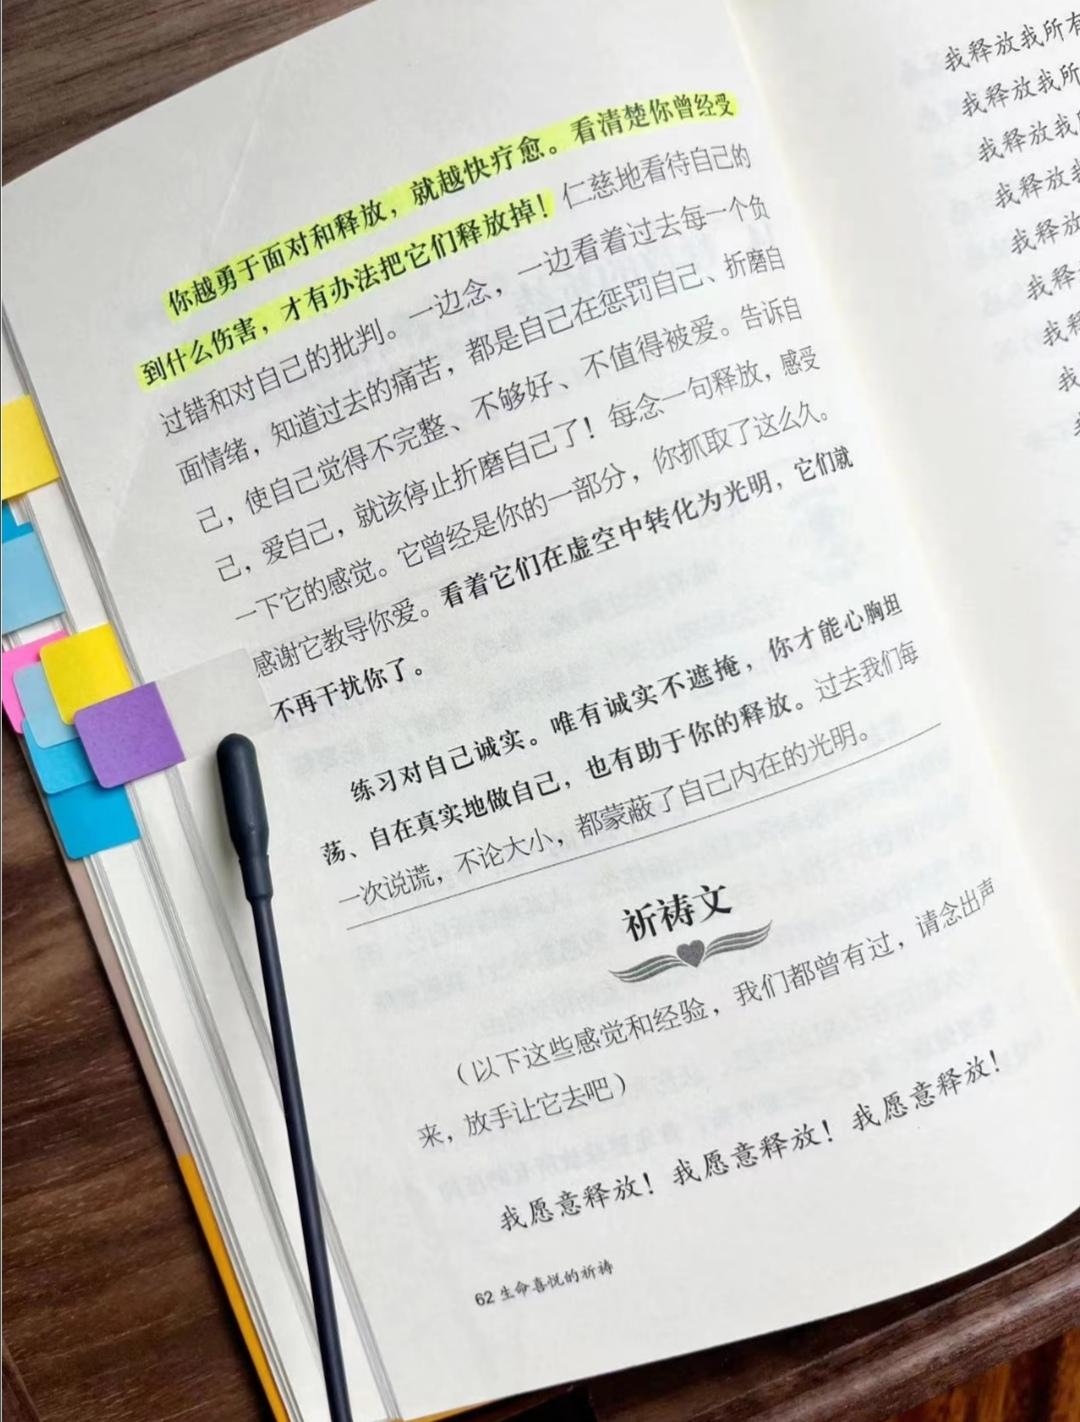 你越勇于面对和释放，就越快疗愈。看清楚你曾经受
到什么伤害，才有办法把它们释放掉！仁慈地看待自己的
过错和对自己的批判。一边念，一边看着过去每一个负
面情绪，知道过去的痛苦，都是自己在惩罚自己、折磨自
己，使自己觉得不完整、不够好、不值得被爱。告诉自
己，爱自己，就该停止折磨自己了！每念一句释放，感受
一下它的感觉。它曾经是你的一部分，你抓取了这么久。
感谢它教导你爱。看着它们在虚空中转化为光明，它们就
不再干扰你了。
练习对自己诚实。唯有诚实不遮掩，你才能心胸坦
荡、自在真实地做自己，也有助于你的释放。过去我们每
一次说谎，不论大小，都蒙蔽了自己内在的光明。
祈祷文
（以下这些感觉和经验，我们都曾有过，请念出声
来，放手让它去吧）
我愿意释放！我愿意释放！我愿意释放！
62 生命喜悦的祈祷
我释放我所有
我释放我所
我释放我
我释放我
我释放
我释放
我释
我
我